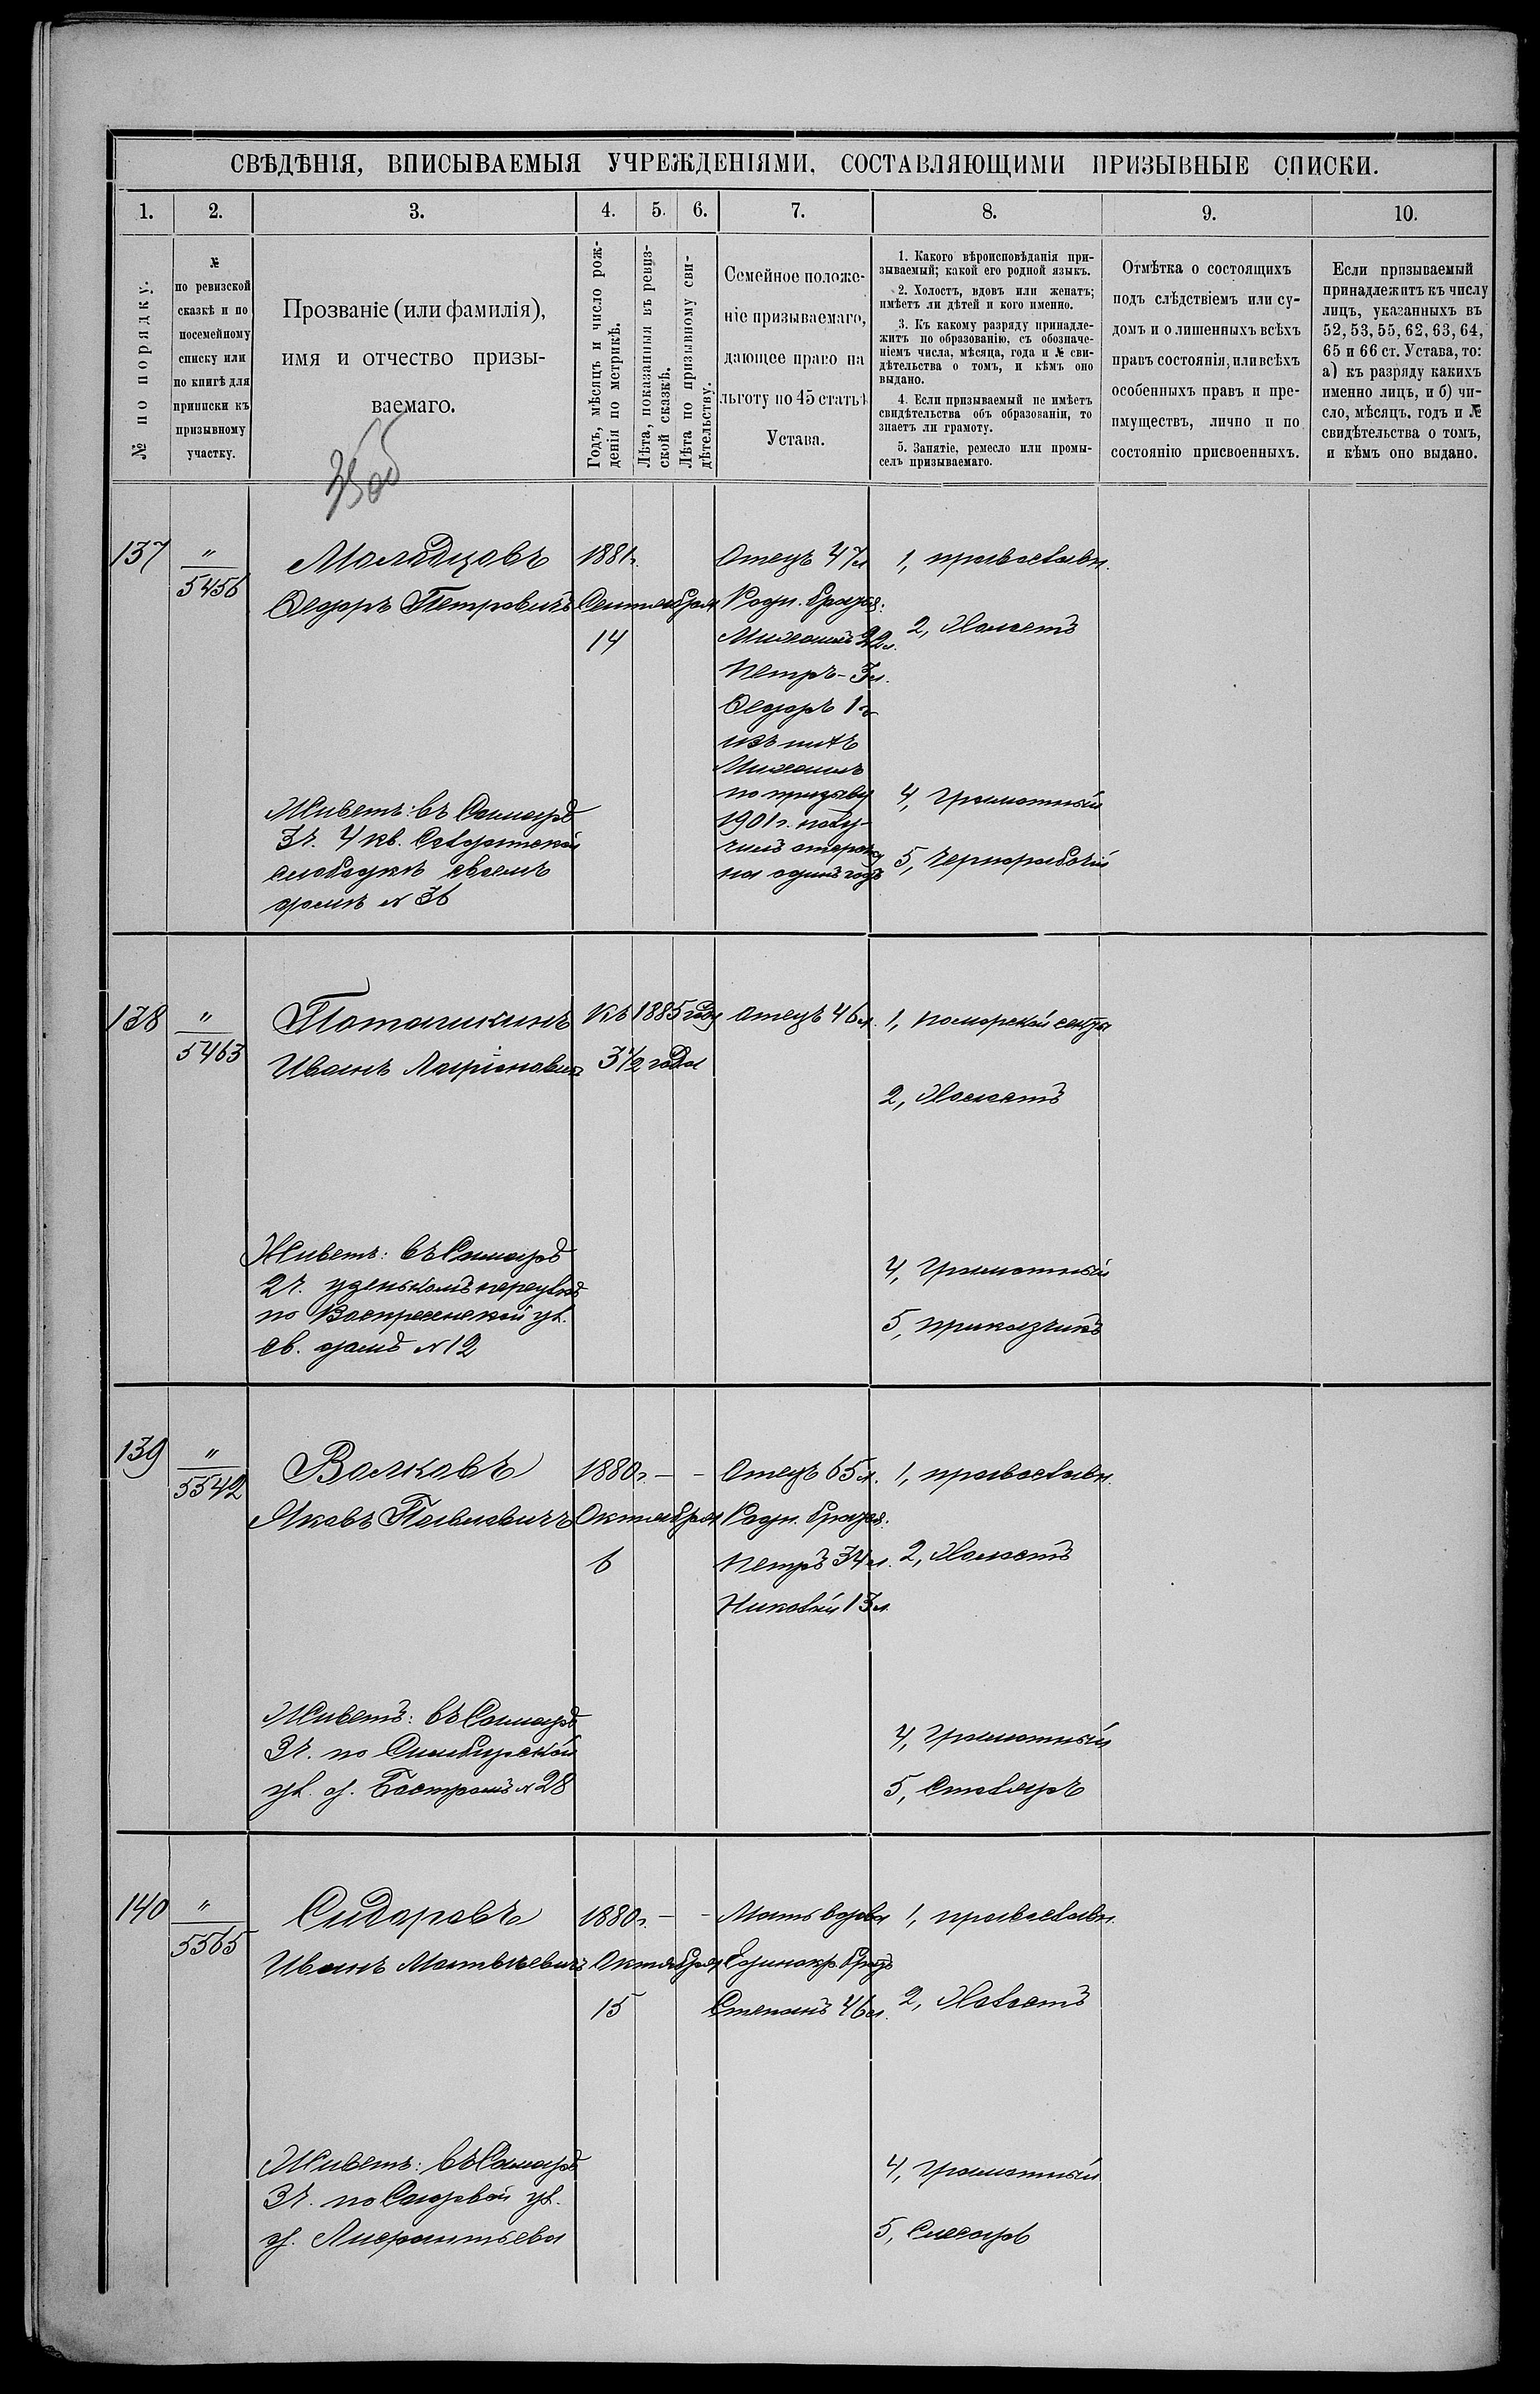 СВѢДѢНІЯ, ВПИСЫВАЕМЫЯ УЧРЕЖДЕНІЯМИ, СОСТАВЛЯЮЩИМИ ПРИЗЫВНЫЕ СПИСКИ.
1. 2. 3. 4. 5. 6. 7. 8. 9. 10.
№ по порядку.
№
по ревизской
сказкѣ и по
посемейному
списку или
по книгѣ для
приписки къ
призывному
участку.
Прозваніе (или фамилія),
имя и отчество призы-
ваемаго.
Годъ, мѣсяцъ и число рож-
денія по метрикѣ.
Лѣта, показанныя въ ревиз-
ской сказкѣ.
Лѣта по призывному сви-
дѣтельству.
Семейное положе-
ніе призываемаго,
дающее право на
льготу по 45 статьѣ
Устава.
1. Какого вѣроисповѣданія при-
зываемый; какой его родной языкъ.
2. Холостъ, вдовъ или женатъ;
имѣетъ ли дѣтей и кого именно.
3. Къ какому разряду принадле-
житъ по образованію, съ обозначе-
ніемъ числа, мѣсяца, года и № сви-
дѣтельства о томъ, и кѣмъ оно
выдано.
4. Если призываемый не имѣетъ
свидѣтельства объ образованіи, то
знаетъ ли грамоту.
5. Занятіе, ремесло или промы-
селъ призываемаго.
Отмѣтка о состоящихъ
подъ слѣдствіемъ или су-
домъ и о лишенныхъ всѣхъ
правъ состоянія, или всѣхъ
особенныхъ правъ и пре-
имуществъ, лично и по
состоянію присвоенныхъ.
Если призываемый
принадлежитъ къ числу
лицъ, указанныхъ въ
52, 53, 55, 62, 63, 64,
65 и 66 ст. Устава, то:
а) къ разряду какихъ
именно лицъ, и б) чи-
сло, мѣсяцъ, годъ и №
свидѣтельства о томъ,
и кѣмъ оно выдано.
137
"
5456
Молодцовъ
Ѳедоръ Петровичъ
Живетъ: въ Самарѣ
3ч. 4 кв.
слободкѣ своемъ
домѣ № 36
1881г.
Сентября
14
Отецъ 47л
Родн. братья:
Михаилъ 22л.
Петръ - 3л.
Ѳедоръ 1г
изъ нихъ
Михаилъ
по призыву
1901г. полу-
чилъ отсрочку
на одинъ годъ
1, православн.
2, Холостъ
4, Грамотный
5, Чернорабочій
138
"
5463
Поташкинъ
Иванъ Ларіоновичъ
Живетъ: въ Самарѣ
2ч. узенькомъ переулкѣ
по Воскресенской ул.
св. домѣ № 12
Къ 1885 году
3 1/2 года
отецъ 46л.
1, поморской секты
2, Холостъ
4, Грамотный
5, приказчикъ
139
"
5542
Волковъ
Яковъ Павловичъ
Живетъ: въ Самарѣ
3ч. по Симбирской
ул. д. Бостромъ № 28
1880г. - -
Октября
6
Отецъ 65л.
Родн. братья:
Петръ 34л.
Николай 13л.
1, православн.
2, Холостъ
4, Грамотный
5, Столяръ
140
"
5565
Сидоровъ
Иванъ Матвѣевичъ
Живетъ: въ Самарѣ
3ч. по Садовой ул.
д. Лаврентьева
1880г. - -
Октября
15
Мать вдова
Единокр. братъ
Степанъ 46л.
1, православн.
2, Холостъ
4, Грамотный
5, Слесарь